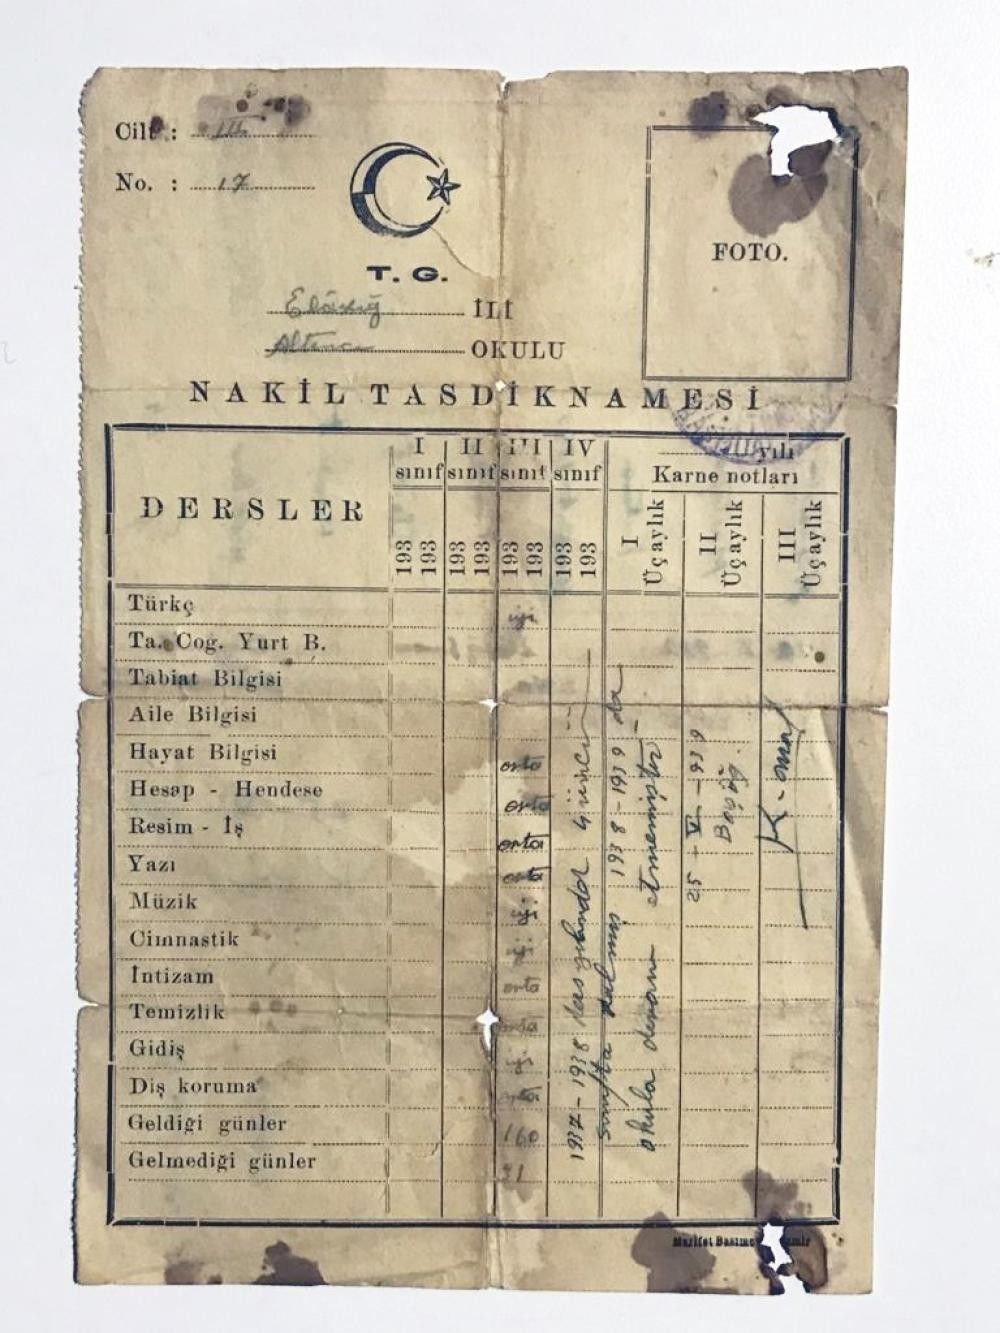 Cilt : 14
No. : 17
T. G.
FOTO.
Elâzığ İLİ
Altıncı OKULU
NAKİL TASDİKNAMESİ
DERSLER
I sınıf
II sınıf
III sınıf
IV sınıf
yılı
Karne notları
193 193
193 193
193 193
193 193
I Üçaylık
II Üçaylık
III Üçaylık
Türkç iyi
Ta. Coğ. Yurt B.
Tabiat Bilgisi
Aile Bilgisi
Hayat Bilgisi orta
Hesap - Hendese orta
Resim - İş orta
Yazı orta
Müzik iyi
Cimnastik iyi
İntizam orta
Temizlik orta
Gidiş iyi
Diş koruma orta
Geldiği günler 160
Gelmediği günler 31
1937-1938 ders yılında 4 üncü
sınıfta kalmış 1938-1939 da
okula devam etmemiştir
25-VI-939
Başöğ.
Marifet Basımev